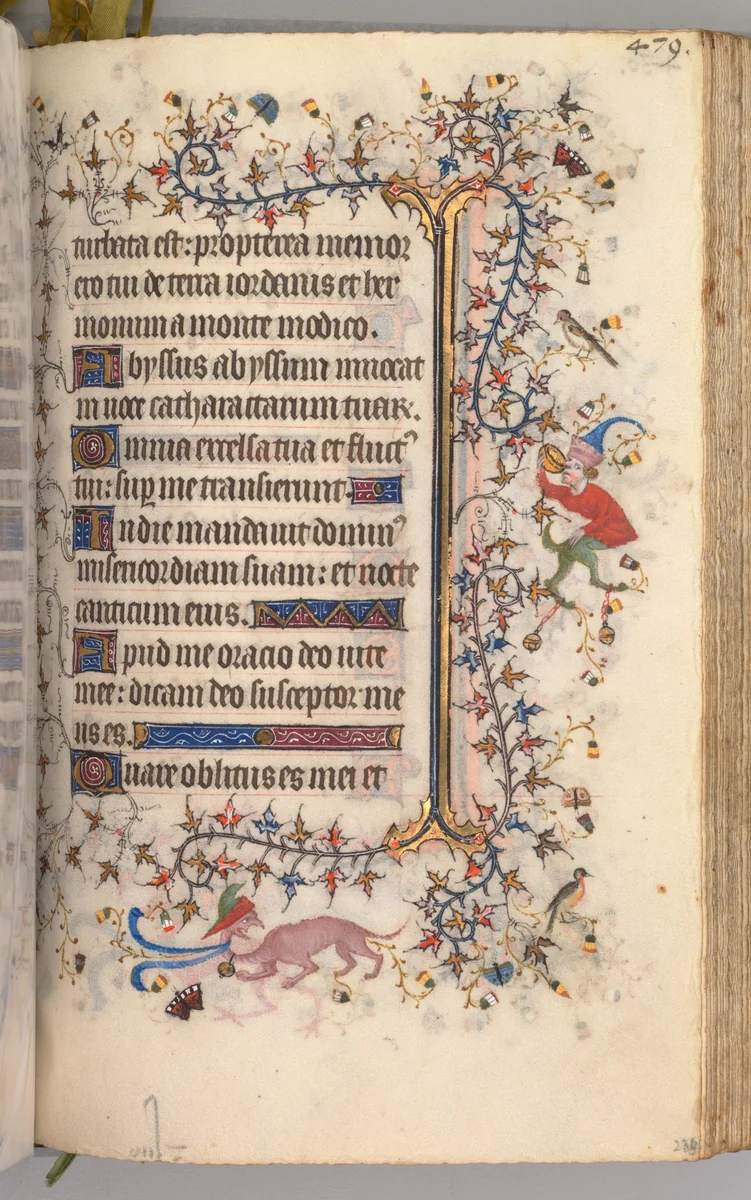 479.
turbata est: propterea memor
ero tui de terra iordanis et her
monium a monte modico.
Abyssus abyssum inuocat
in uoce catharactarum tuar.
Omnia excelsa tua et fluct᾽
tui: sup me transierunt.
In die mandauit domin᾽
misericordiam suam: et nocte
canticum eius.
Apud me oracio deo uite
mee: dicam deo susceptor me
us es.
Quare oblitus es mei et